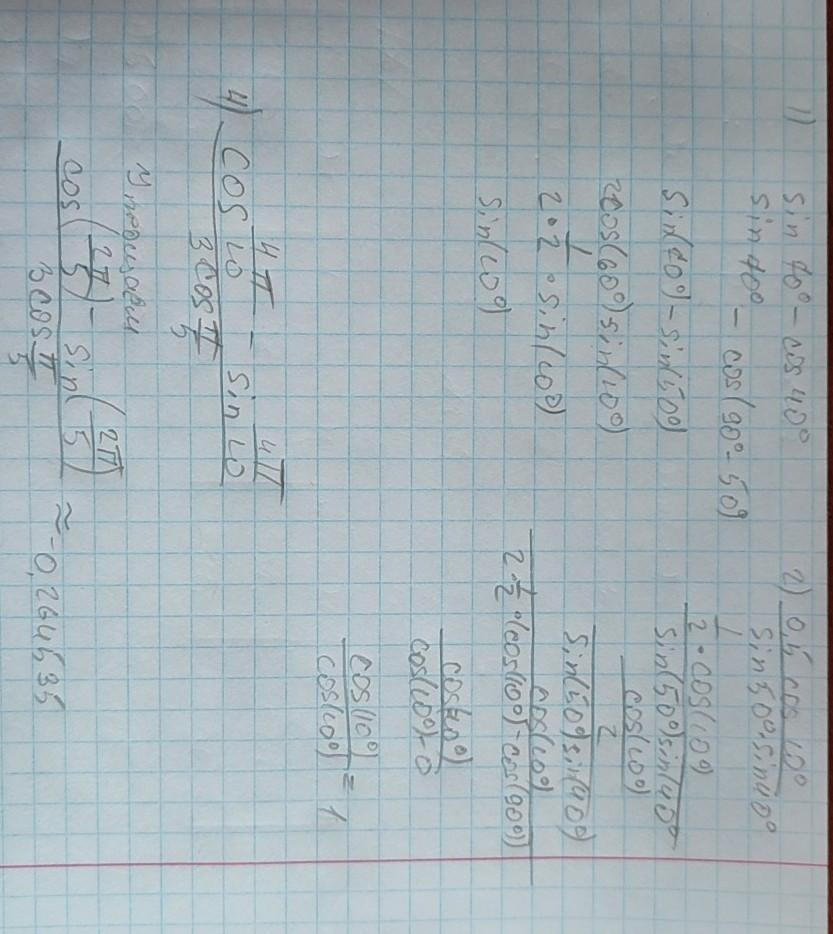 1) sin 70° - cos 40°
sin 70° - cos(90° - 50°)
sin(70°) - sin(50°)
2cos(60°)sin(10°)
2 • 1/2 • sin(10°)
sin(10°)
2) 0,5 cos 10° / sin 50° • sin 40°
1/2 • cos(10°) / sin(50°)sin(40°
cos(10°) / 2 / sin(50°)sin(40°)
cos(10°) / 2 • 1/2 • (cos(10°) - cos(90°))
cos(10°) / cos(10°) - 0
cos(10°) / cos(10°) = 1
4) cos 4π/10 - sin 4π/10 / 3 cos π/5
cos(2π/5) - sin(2π/5) / 3 cos π/5 ≈ -0,264535